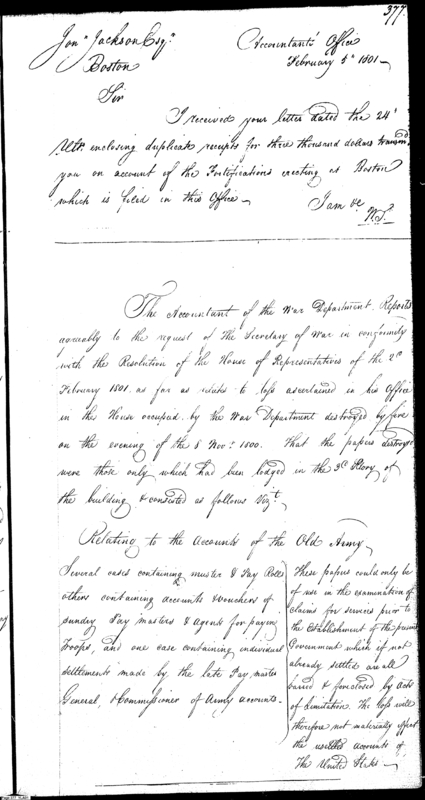 377.
Jon.ª Jackson Esq.ʳ
Boston
Accountants' Office
February 5ᵗʰ 1801
Sir
I received your letter dated the 24ᵗ
Ultᵒ. enclosing duplicate receipts for three thousand dollars
you on account of the Fortifications erecting at Boston
which is filed in this Office
I am &c
W. S.
The Accountant of the War Department Reports
agreeably to the request of The Secretary of War in conformity
with the Resolution of the House of Representatives of the 2ᶜᵈ
February 1801 as far as relates to loss ascertained in his Office
in the House occupied by the War Department destroyed by fire
on the evening of the 8 Novʳ. 1800. That the papers destroyed
were those only which had been lodged in the 3ᵈ Story of
the building & consisted as follows Vizᵗ.
Relating to the Accounts of the Old Army
Several cases containing muster & Pay Rolls
& others containing accounts & vouchers of
sundry Pay masters & Agents for paying
Troops, and one case containing individual
settlements made by the late Pay master
General, & Commissioner of Army accounts.
These papers could only be
of use in the examination of
claims for services prior to
the Establishment of the present
Government which if not
already settled are all
barred & foreclosed by Acts
of limitation. The loss will
therefore not materially affect
the unsettled accounts of
The United States